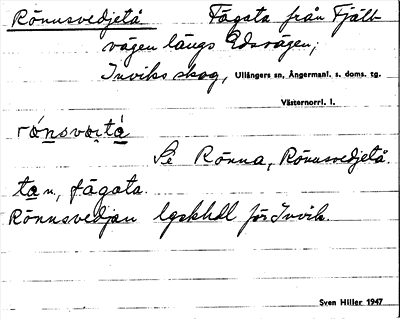 Rönnsvedjetå Fägata från Fjäll-
vägen längs Edsvägen;
Inviks skog, Ullångers sn, Ångermanl. s. doms. tg.
Västernorrl. l.
rónsvaıtá
Se Rönna, Rönnsvedjetå.
tan, fägata.
Rönnsvedjan lgskhdl för Invik.
Sven Hiller 1947